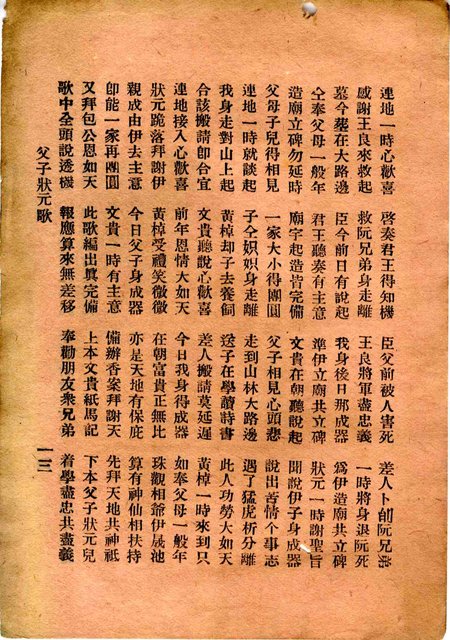 連地一時心歡喜 啓奏君王得知機 臣父前被人害死 差人卜刣阮兄弟
感謝王良來救起 救阮兄弟身走離 王良將軍盡忠義 一時將身退阮死
墓今塟在大路邊 臣今前日有說起 我身後日那成器 爲伊造廟共立碑
仝奉父母一般年 君王聽奏有主意 準伊立廟共立碑 狀元一時謝聖旨
造廟立碑勿延時 廟宇起造皆完備 文貴在朝聽說起 聞說伊子身成器
父母子兒得相見 一家大小得團圓 父子相見心頭悲 說出苦情个事志
連地一時就談起 子仝身走離 走到山林大路邊 遇了猛虎析分離
我身走對山上起 黃棹却子去養飼 送子在學讀詩書 此人功勞大如天
合該搬請卽合宜 文貴聽說心歡喜 差人搬請莫延遲 黃棹一時來到只
連地接入心歡喜 前年恩情大如天 今日我身得成器 如奉父母一般年
狀元跪落拜謝伊 黃棹受禮笑微微 在朝富貴正無比 珠觀相爺伊晟池
親成由伊去主意 今日父子身成器 亦是天地有保庇 算有神仙相扶持
卽能一家再團圓 文貴一時有主意 備辦香案拜謝天 先拜天地共神祗
又拜包公恩如天 此歌編出眞完備 上本文貴紙馬記 下本父子狀元兒
歌中全頭說透機 報應算來無差移 奉勸朋友衆兄弟 着學盡忠共盡義
父子狀元歌 一三